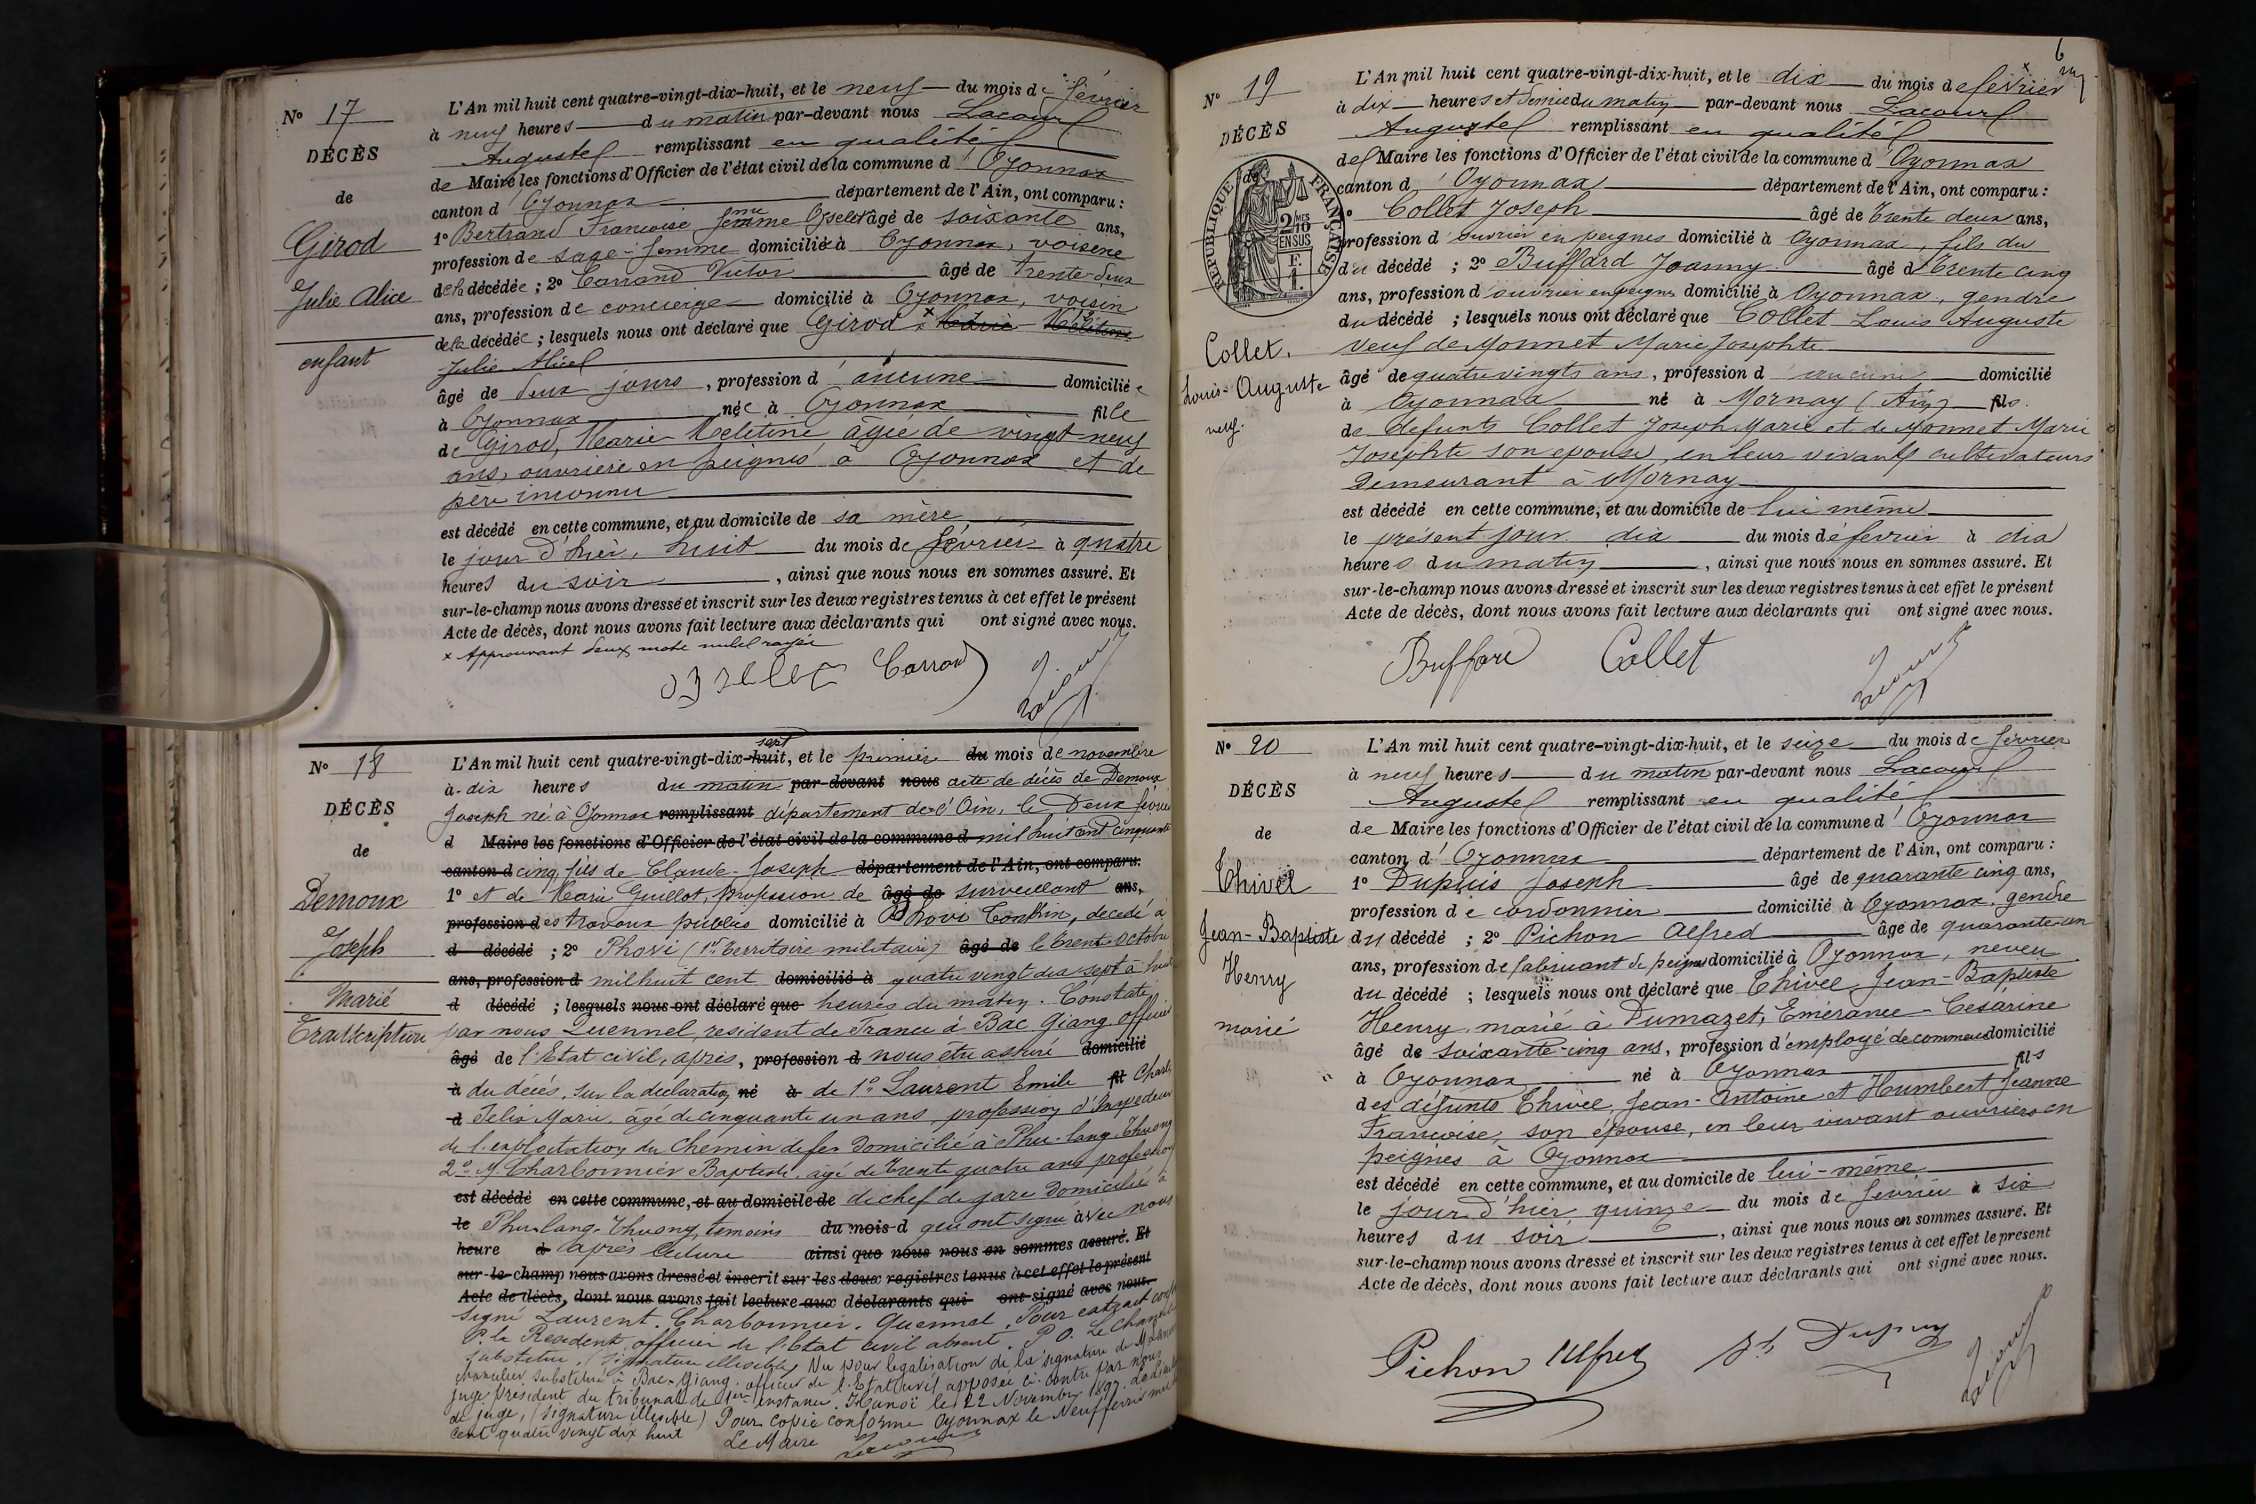 N° 17
DÉCÈS
de
Girod
Julie Alice
enfant
L'An mil huit cent quatre-vingt-dix-huit, et le neuf du mois de février
à neuf heures du matin par-devant nous Lacour
Auguste remplissant en qualité
de Maire les fonctions d'Officier de l'état civil de la commune d'Oyonnax
canton d'Oyonnax département de l'Ain, ont comparu :
1° Bertrand Françoise femme âgé de soixante ans,
profession de sage-femme domiciliée à Oyonnax, voisine
de la décédée ; 2° Carrand Victor âgé de trente-deux
ans, profession de concierge domicilié à Oyonnax, voisin
de la décédée ; lesquels nous ont déclaré que Girod x Marie Mélitine
Julie Alice
âgé de deux jours, profession d'aucune domiciliée
à Oyonnax née à Oyonnax fille
de Girod, Marie Melitine âgée de vingt neuf
ans, ouvrière en peignes à Oyonnax et de
père inconnu
est décédé en cette commune, et au domicile de sa mère
le jour d'hier, huit du mois de février à quatre
heures du soir, ainsi que nous nous en sommes assuré. Et
sur-le-champ nous avons dressé et inscrit sur les deux registres tenus à cet effet le présent
Acte de décès, dont nous avons fait lecture aux déclarants qui ont signé avec nous.
x Approuvant deux mots nuls rayés
Carrand
N° 18
DÉCÈS
de
Demoux
Joseph
Marié
Transcription
L'An mil huit cent quatre-vingt-dix-huit sept, et le premier du mois de novembre
à dix heures du matin par-devant nous acte de décès de Demoux
Joseph né à Oyonnax remplissant département de l'Ain, le deux février
d Maire les fonctions d'Officier de l'état civil de la commune d mil huit cent cinquante
canton d cinq fils de Claude-Joseph département de l'Ain, ont comparu.
1° et de Marie Guillot, profession de âgé de surveillant ans,
profession des travaux publics domicilié à Phovi Tonkin, décédé à
d décédé ; 2° Phovi (1er territoire militaire) âgé de le trente octobre
ans, profession d mil huit cent domicilié à quatre vingt dix sept à huit
d décédé ; lesquels nous ont déclaré que heures du matin. Constaté
par nous Quennel, résident de France à Bac Giang officier
âgé de l'Etat civil, après, profession d nous être assuré domicilié
à du décès, sur la déclaration né à de 1° Laurent Emile fil Charles
d Felix Marie, âgé de cinquante un ans, profession d'Inspecteur
de l'exploitation du Chemin de fer domicilié à Phu-lang-Thuong
2° M. Charbonnier Baptiste, âgé de trente quatre ans profession
est décédé en cette commune, et au domicile de de chef de gare domicilié à
le Phu-lang-Thuong, témoins du mois d qui ont signé avec nous
heure d après lecture ainsi que nous nous en sommes assuré. Et
sur-le-champ nous avons dressé et inscrit sur les deux registres tenus à cet effet le présent
Acte de décès, dont nous avons fait lecture aux déclarants qui ont signé avec nous.
Signé Laurent. Charbonnier. Quennel. Pour extrait
P. le Résident officier de l'Etat civil absent. P.O. Le
substitué. (signature illisible) Vu pour légalisation de la signature de M.
chancelier substitué à Bac-Giang. officier de l'Etat civil apposée ci-contre par nous
juge président du tribunal de 1ere Instance. Hanoï le 22 Novembre 1897.
de juge, (signature illisible) Pour copie conforme Oyonnax le neuf février mil huit
cent quatre vingt dix huit
Le Maire
6
N° 19
DÉCÈS
de
RÉPUBLIQUE FRANÇAISE
2/10 MES
EN SUS
F.
1.
Collet.
Louis-Auguste
veuf.
L'An mil huit cent quatre-vingt-dix-huit, et le dix du mois de février
à dix heures et demie du matin par-devant nous Lacour
Auguste remplissant en qualité
de Maire les fonctions d'Officier de l'état civil de la commune d'Oyonnax
canton d'Oyonnax département de l'Ain, ont comparu :
1° Collet Joseph âgé de trente deux ans,
profession d'ouvrier en peignes domicilié à Oyonnax, fils du
du décédé ; 2° Buffard Joanny âgé de trente cinq
ans, profession d'ouvrier en peignes domicilié à Oyonnax, gendre
du décédé ; lesquels nous ont déclaré que Collet Louis Auguste
veuf de Monnet Marie Josephte
âgé de quatre vingts ans, profession d aucune domicilié
à Oyonnax né à Mornay (Ain) fils
de defunts Collet Joseph Marie et de Monnet Marie
Josephte son épouse, en leur vivant cultivateurs
demeurant à Mornay
est décédé en cette commune, et au domicile de lui même
le présent jour dix du mois de février à dix
heures du matin, ainsi que nous nous en sommes assuré. Et
sur-le-champ nous avons dressé et inscrit sur les deux registres tenus à cet effet le présent
Acte de décès, dont nous avons fait lecture aux déclarants qui ont signé avec nous.
Buffard Collet
N° 20
DÉCÈS
de
Thivel
Jean-Baptiste
Henry
marié
L'An mil huit cent quatre-vingt-dix-huit, et le seize du mois de février
à neuf heures du matin par-devant nous Lacour
Auguste remplissant en qualité
de Maire les fonctions d'Officier de l'état civil de la commune d'Oyonnax
canton d'Oyonnax département de l'Ain, ont comparu :
1° Dupuis Joseph âgé de quarante cinq ans,
profession de cordonnier domicilié à Oyonnax, gendre
du décédé ; 2° Pichon Alfred âgé de quarante un
ans, profession de fabricant de peignes domicilié à Oyonnax, neveu
du décédé ; lesquels nous ont déclaré que Thivel, Jean-Baptiste
Henry, marié à Dumazet, Emérance-Césarine
âgé de soixante-cinq ans, profession d'employé de commerce domicilié
à Oyonnax né à Oyonnax fils
des défunts Thivel Jean-Antoine et Humbert Jeanne
Françoise, son épouse, en leur vivant ouvriers en
peignes à Oyonnax
est décédé en cette commune, et au domicile de lui-même
le jour d'hier quinze du mois de février à six
heures du soir, ainsi que nous nous en sommes assuré. Et
sur-le-champ nous avons dressé et inscrit sur les deux registres tenus à cet effet le présent
Acte de décès, dont nous avons fait lecture aux déclarants qui ont signé avec nous.
Pichon Alfred Dupuy